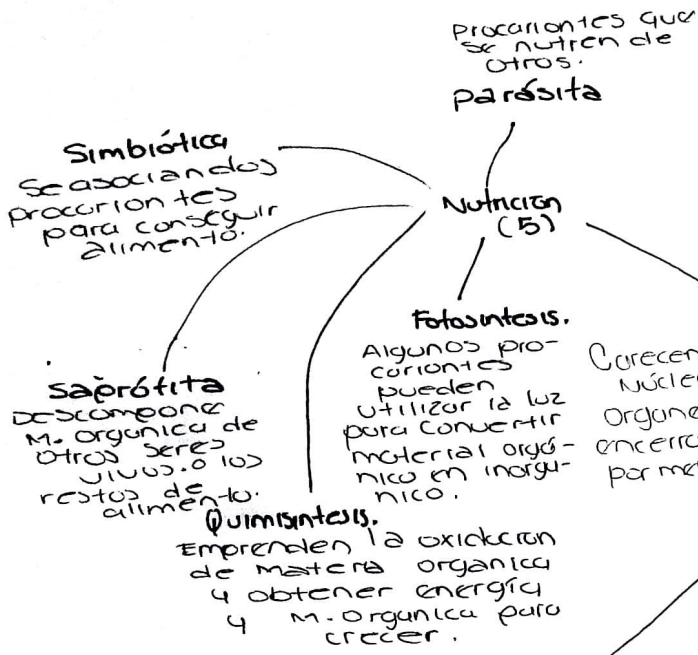 Procariontes que
se nutren de
otros.
parásita
Simbiótica
Se asocian dos
procariontes
para conseguir
alimento.
Nutrición
(5)
Fotosíntesis.
Algunos pro-
cariontes
pueden
utilizar la luz
para convertir
material orgá-
nico en inorgá-
nico.
saprófita
Descompone
M. organica de
otros seres
vivos. o los
restos de
alimento.
Quimisintesis.
Emprenden la oxidacion
de materia organica
y obtener energía
y M. organica para
crecer.
Carecen
Núcle
organe
encerra
por me